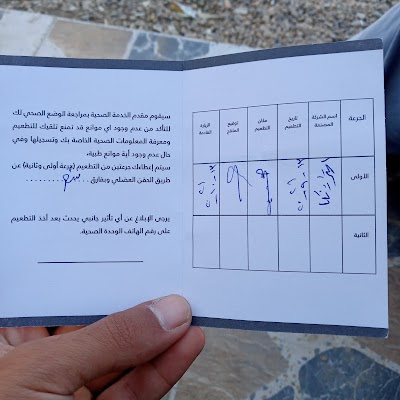 سيقوم مقدم الخدمة الصحية بمراجعة الوضع الصحي لك
للتأكد من عدم وجود اي موانع قد تمنع تلقيك للتطعيم
ومعرفة المعلومات الصحية الخاصة بك وتسجيلها وفي
حال عدم وجود أية موانع طبية،
سيتم إعطاءك جرعتين من التطعيم (جرعة أولى وثانية) عن
طريق الحقن العضلي وبفارق
يرجى الإبلاغ عن أي تأثير جانبي يحدث بعد أخذ التطعيم
على رقم الهاتف الوحدة الصحية.
الجرعة
اسم الشركة المصنعة
تاريخ التطعيم
مكان التطعيم
توقيع
الزيارة القادمة
الأولى
الثانية